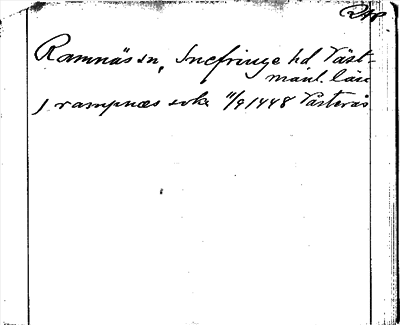 Ramnäs sn, Snefringe hd Väst-
manl. län
J rampnæs sokn 11/9 1448 Västerås